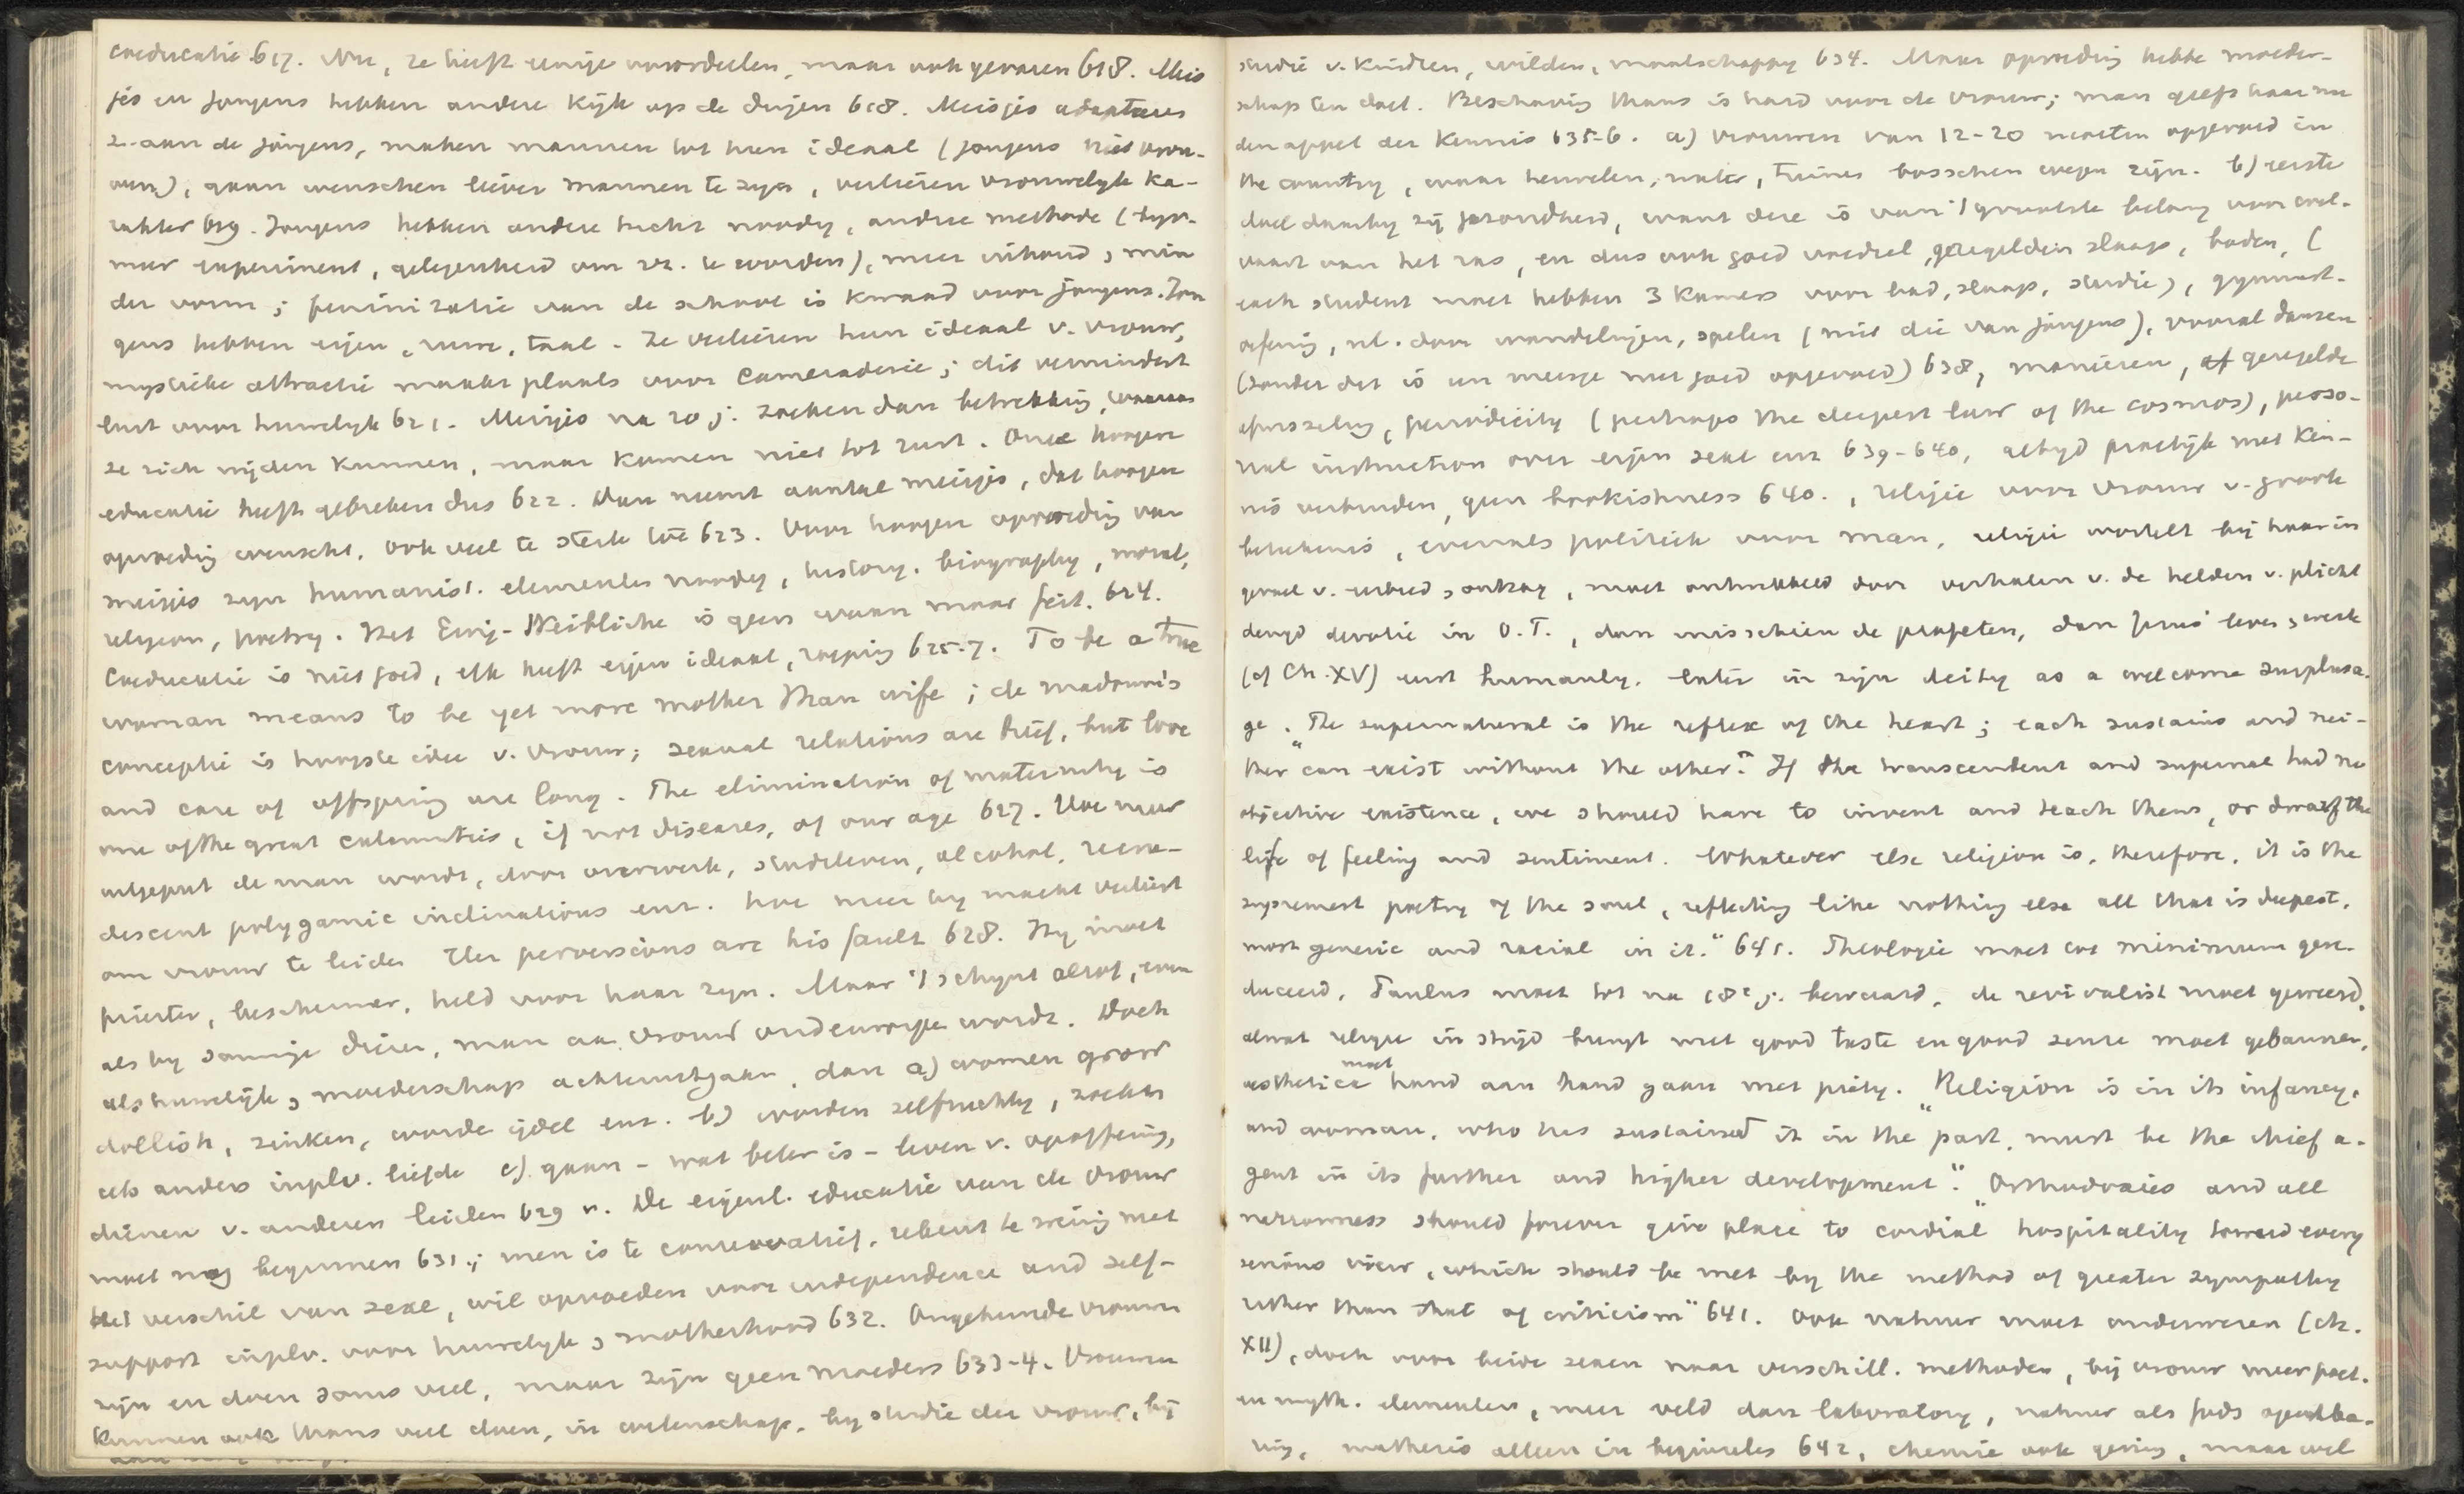 coeducatie 617. Nu, ze heeft eenige voordeelen, maar ook gevaren 618. Meis
jes en jongens hebben andere kijk op de dingen 618. Meisjes adapteeren
z. aan de jongens, maken mannen tot hun ideaal (jongens niet vrou-
wen), gaan wenschen liever mannen te zijn, verliezen vrouwelijk ka-
rakter 619. Jongens hebben andere tucht noodig, andere methode (
meer experiment, gelegenheid om vr. te worden), meer inhoud, min
der vorm; feminizatie van de school is kwaad voor jongens. Jon
gens hebben eigen taal. Ze verliezen hun ideaal v. vrouw,
mystieke attractie maakt plaats voor cameraderie; dit vermindert
lust voor huwelijk 621. Meisjes na 20 j. zoeken dan betrekking, waaraan
ze zich wijden kunnen, maar komen niet tot rust. Onze hoogere
educatie heeft gebreken dus 622. Dan neemt aantal meisjes, dat hoogere
opvoeding wenscht, ook veel te sterk toe 623. Voor hoogere opvoeding van
meisjes zijn humanist. elementen noodig, history, biography, moral,
religion, poetry. Het Ewig-Weibliche is geen waan maar feit. 624.
Coeducatie is niet goed, elk heeft eigen ideaal, roeping 625-7. To be a true
woman means to be yet more mother than wife; de madonna's
conceptie is hoogste idee v. vrouw; sexual relations are brief, but love
and care of offspring are long. The elimination of maternity is
one of the great calamities, if not diseases, of our age 627. Hoe meer
uitgeput de man wordt, door overwerk, stadsleven, alcohol, recru-
descent polygamic inclinations enz. hoe meer hij macht verliest
om vrouw te leiden. Her perversions are his fault 628. Hij moet
priester, beschermer, held voor haar zijn. Maar 't schijnt alsof, even
als bij sommige dieren, man aan vrouw ondeworpen wordt. Doch
als huwelijk, moederschap achteruitgaan, dan a) women grow
dollish, zinken, worde ijdel enz. b) worden zelfzuchtig, zoeken
iets anders inplv. liefde c) gaan - wat beter is - leven v. opoffering,
dienen v. anderen leiden 629 v. De eigenl. educatie van de vrouw
moet nog beginnen 631.; men is te conservatief, rekent te weinig met
het verschil van sexe, wil opvoeden voor independence and self-
support inplv. voor huwelijk, motherhood 632. Ongehuwde vrouwen
zijn en doen soms veel, maar zijn geen moeders 633-4. Vrouwen
kunnen ook thans veel doen, in wetenschap, bij studie der vrouw, bij
studie v. kinderen, wilden, maatschappij 634. Maar opvoeding hebbe moeder-
schap ten doel. Beschaving thans is hard voor de vrouw; man geeft haar nu
den appel der kennis 635-6. a) vrouwen van 12-20 moeten opgevoed in
the country, waar heuvelen, water, tuinen bosschen wegen zijn. b) eerste
doel daarbij zij gezondheid, want deze is van 't grootste belang voor wel-
vaart van het ras, en dus ook goed voedsel, geregelden slaap, baden, (
each student moet hebben 3 kamers voor bad, slaap, studie), gymnast.
oefening, nl. door wandelingen, spelen (niet die van jongens), vooral dansen
(zonder dat is een meisje niet goed opgevoed) 638, manieren, geregelde
afwisseling, periodicity (perhaps the deepest law of the cosmos), perso-
nal instruction over eigen sexe enz 639-640, altijd practijk met ken-
nis verbinden, geen bookishness 640., religie voor vrouw v. groote
beteekenis, evenals politiek voor man, religie wortelt bij haar in
gevoel v. eerbied, ontzag, moet ontwikkeld door verhalen v. de helden v. plicht
deugd devotie in O.T., dan misschien de profeten, dan Jezus' leven, werk
(of Ch. XV) eerst humanly, later in zijn deity as a welcome surplusa-
ge. "The supernatural is the reflex of the heart; each sustains and nei-
ther can exist without the other." If the transcendent and supernal had no
objective existence, we should have to invent and teach them, or dwarf the
life of feeling and sentiment. Whatever else religion is, therefore, it is the
supremest poetry of the soul, reflecting like nothing else all that is deepest,
most generic and racial in it." 641. Theologie moet tot minimum gere-
duceerd, Paulus moet tot na 18e j. bewaard, de revivalist moet geweerd,
alwat religie in strijd brengt met good taste en good sense moet gebannen,
aesthetica moet hand aan hand gaan met piety. "Religion is in its infancy,
and woman, who has sustained it in the past, must be the chief a-
gent in its further and higher development". "Orthodoxies and all
narrowness should forever give place to cordial hospitality toward every
serious view, which should be met by the method of greater sympathy
rather than that of criticism" 641. Ook natuur moet onderwezen (ch.
XII), doch voor beide sexen naar verschill. methoden, bij vrouw meer poet.
en myth. elementen, meer veld dan laboratory, natuur als Gods openba-
ring, mathesis alleen in beginselen 642, chemie ook weinig, maar wel